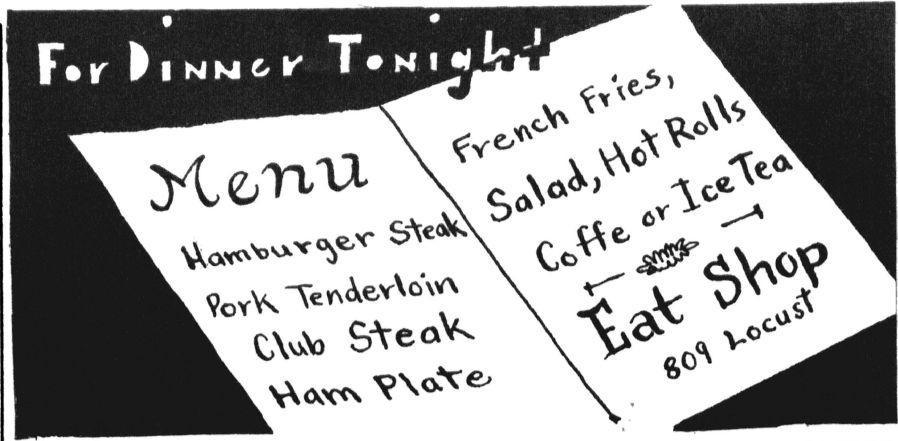 For Dinner Tonight
Menu
Hamburger Steak
Pork Tenderloin
Club Steak
Ham Plate
French Fries,
Salad, Hot Rolls
Coffe or Ice Tea
Eat Shop
809 Locust